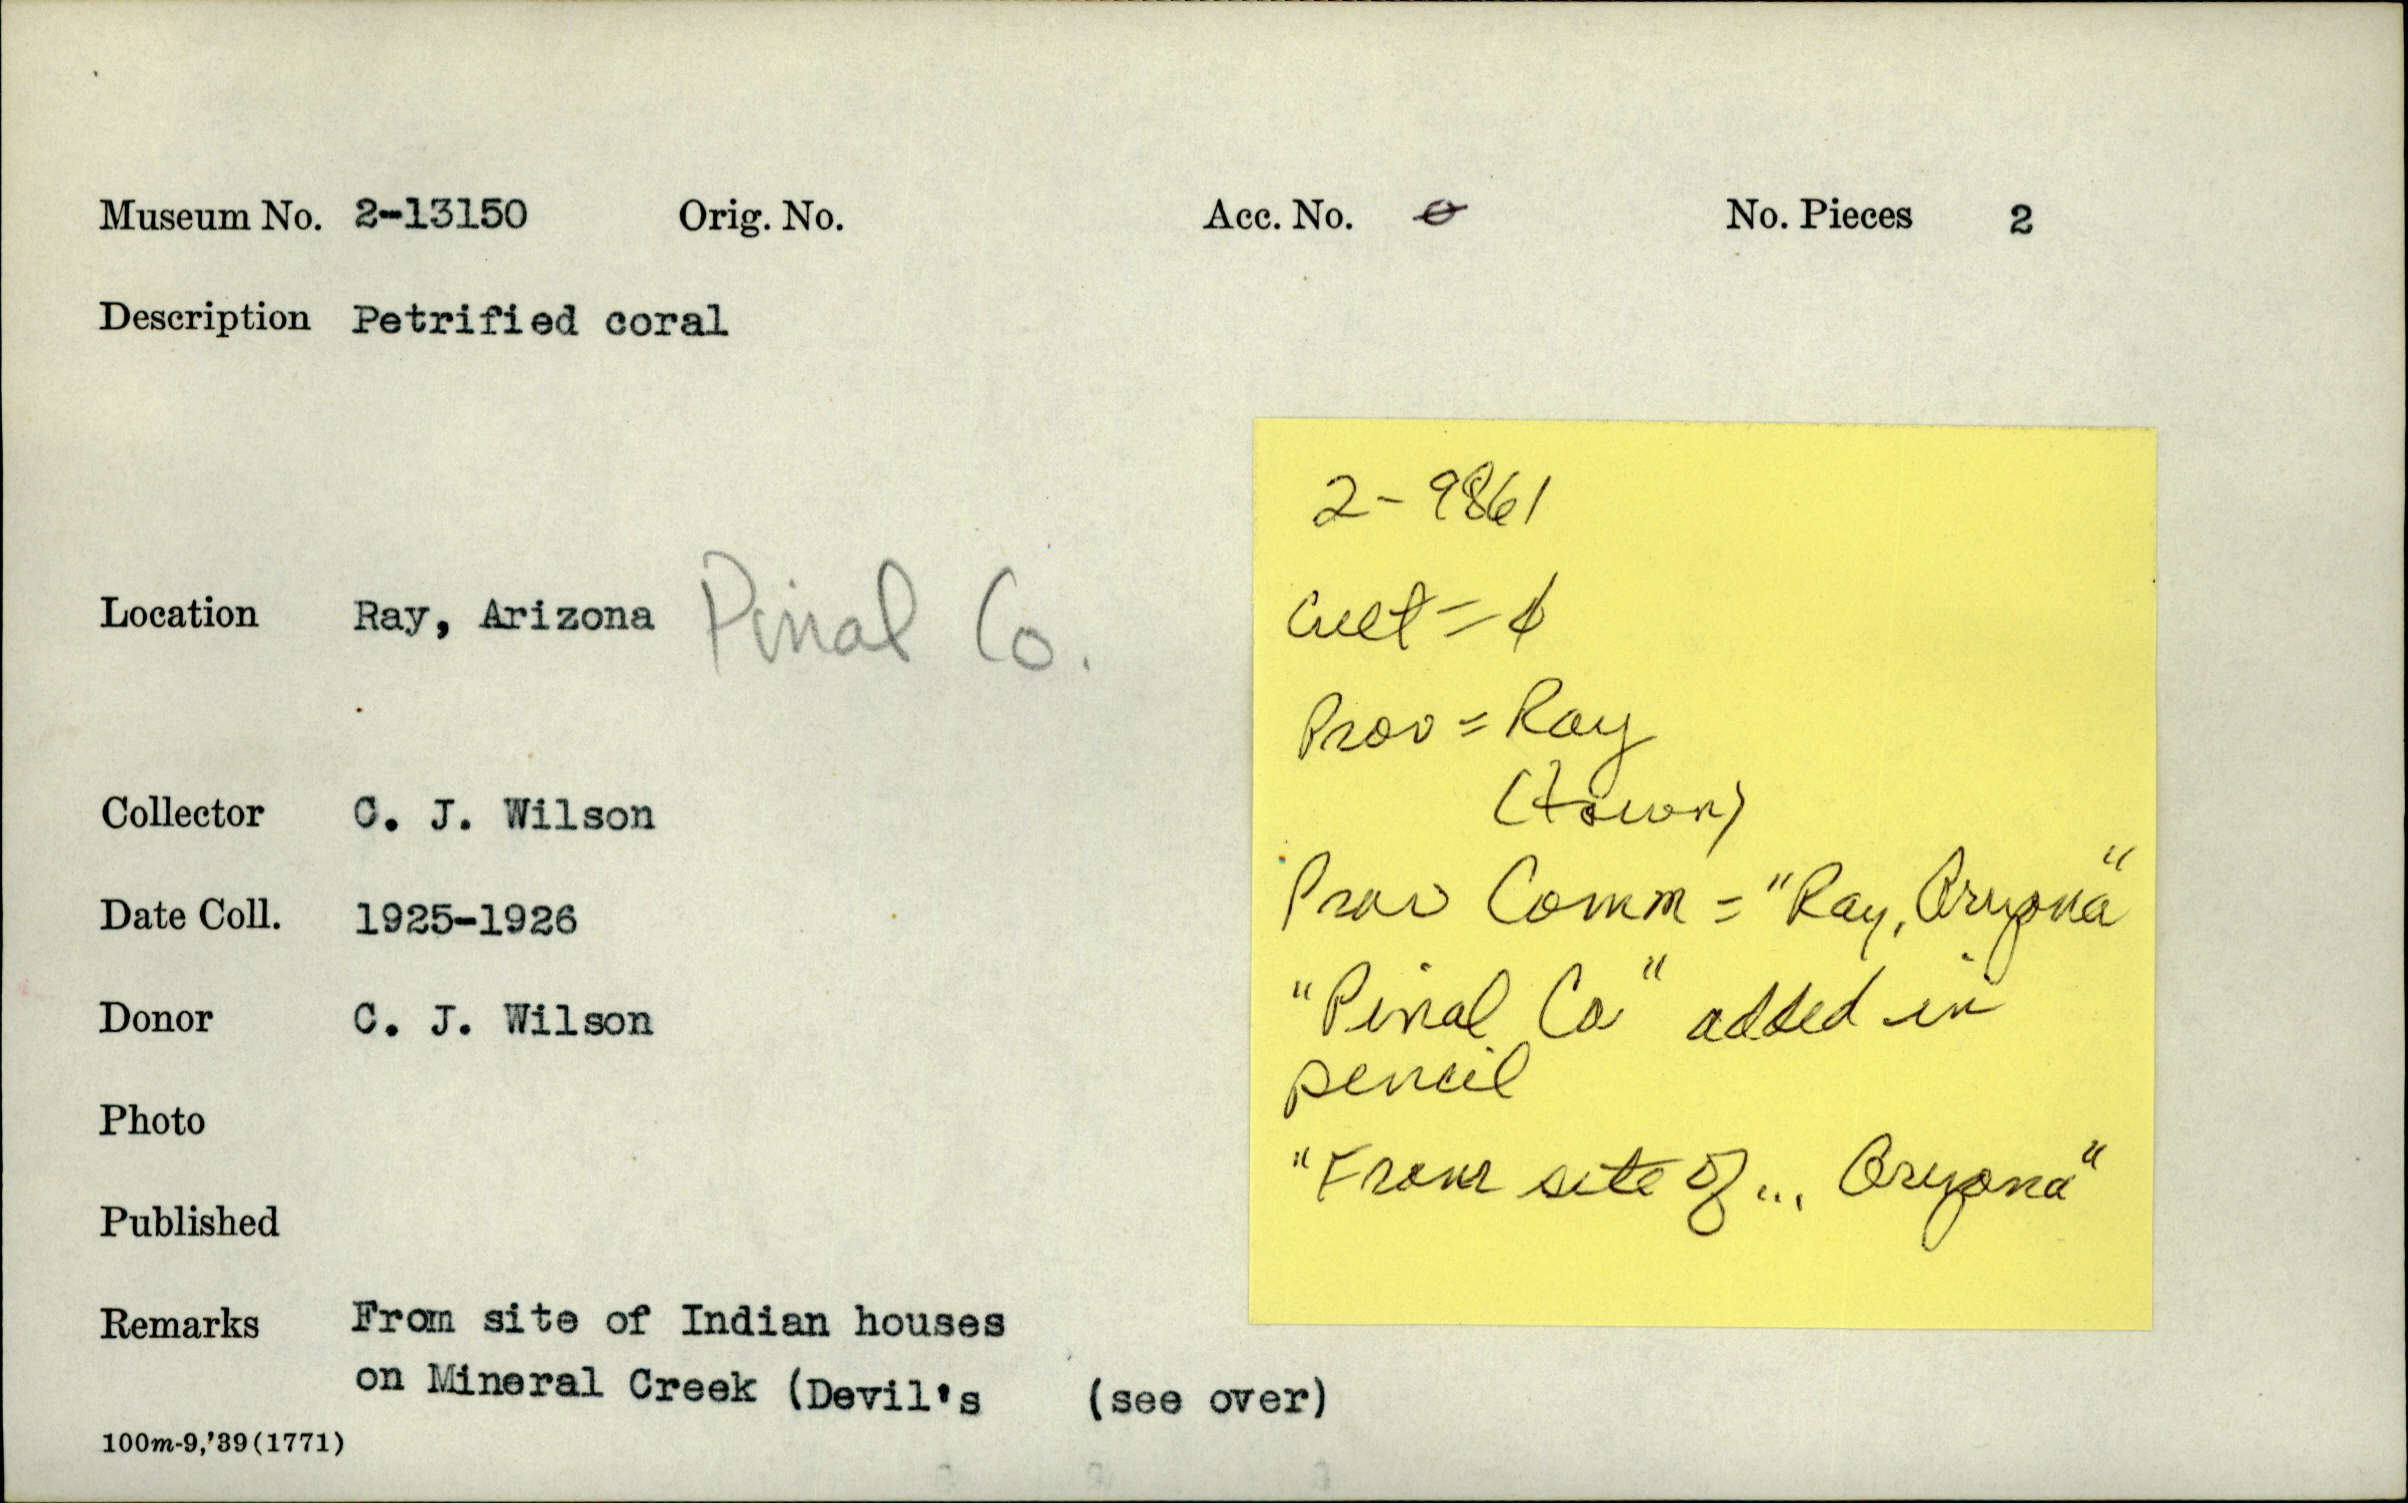 Museum No. 2-13150 Orig. No. Acc. No. ∅ No. Pieces 2
Description Petrified coral
Location Ray, Arizona Pinal Co.
Collector C. J. Wilson
Date Coll. 1925-1926
Donor C. J. Wilson
Photo
Published
Remarks From site of Indian houses
on Mineral Creek (Devil's (see over)
100m-9,'39(1771)
2-9861
Cult = ∅
Prov = Ray
(town)
Prov Comm = "Ray, Arizona"
"Pinal Co" added in
pencil
"From site of... Arizona"